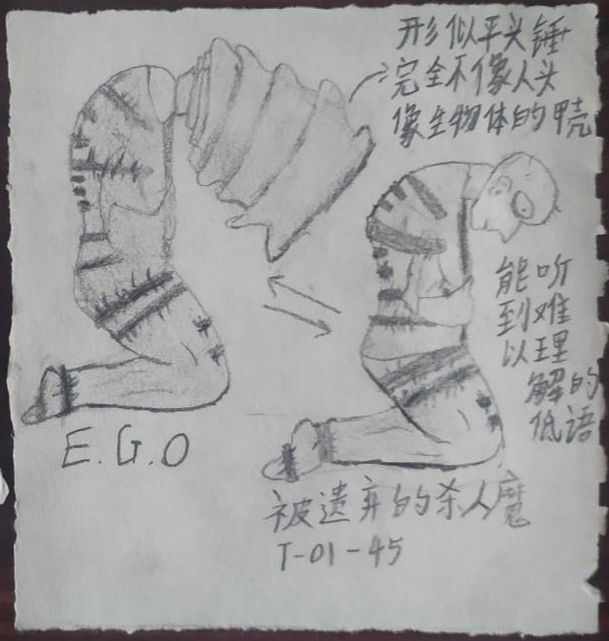 形似平头锤
完全不像人头
像生物体的甲壳
能听
到难
以理
解的
低语
E.G.O
被遗弃的杀人魔
T-01-45